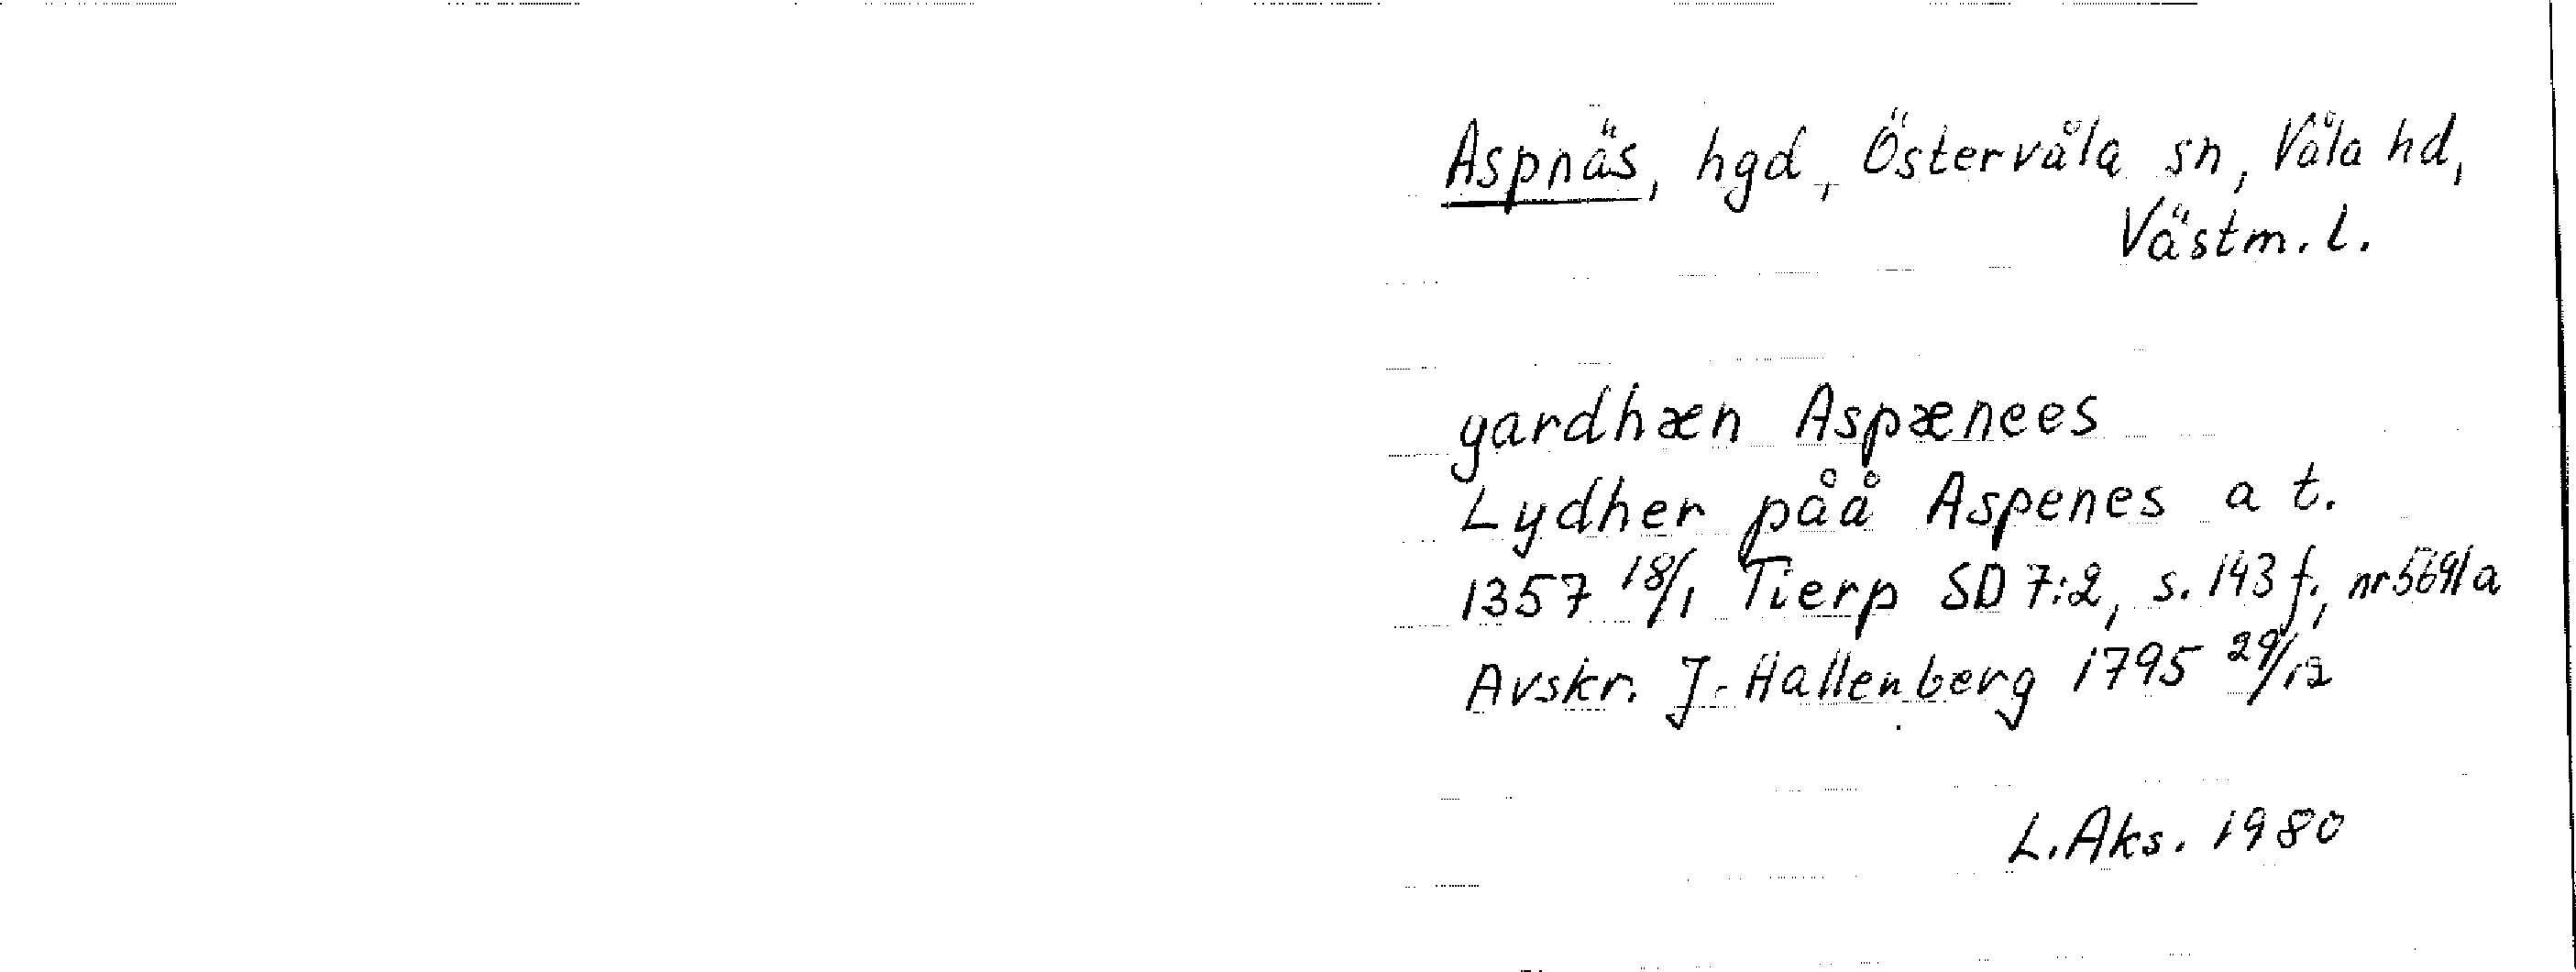 Aspnäs, hgd, Östervåla sn, Våla hd,
Västm. l.
gardhæn Aspænees
Lydher påå Aspenes a t.
1357 18/1 Tierp SD 7:2, s. 143 f., nr 5691 a
Avskr. J. Hallenberg 1795 29/12
L. Aks. 1980